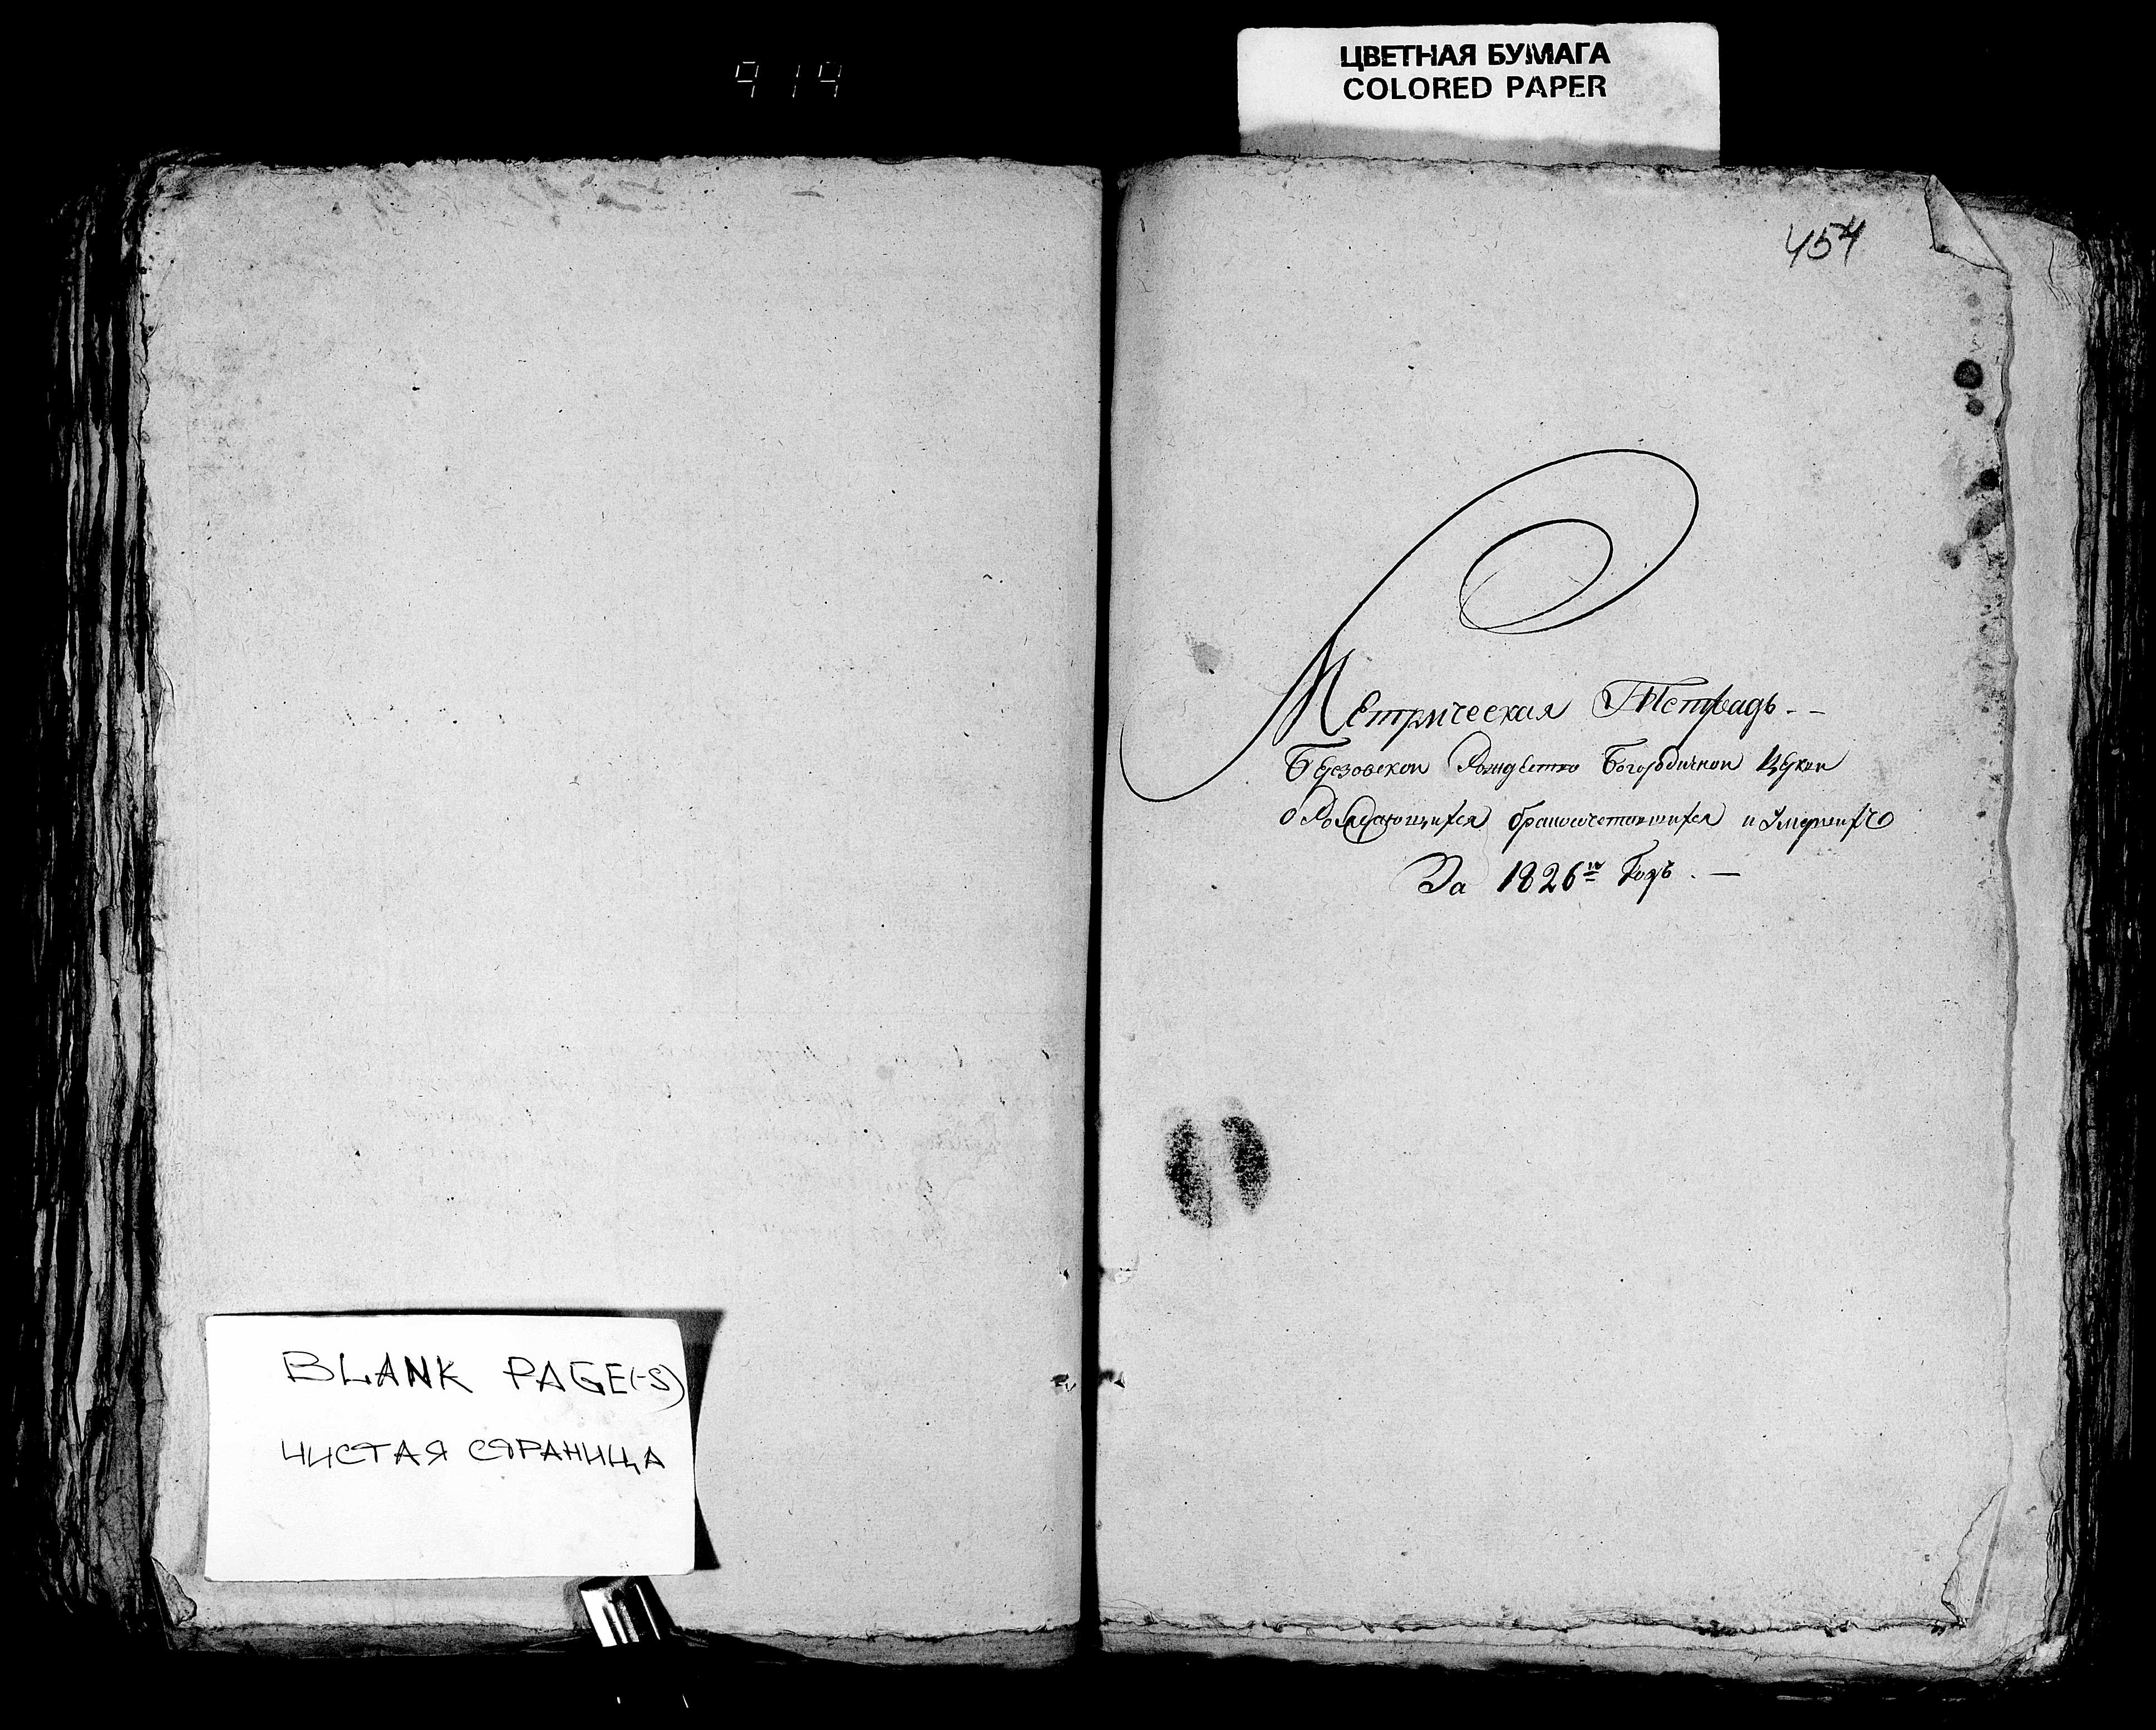 919
ЦВЕТНАЯ БУМАГА
COLORED PAPER
454
Метрическая Тетрадь. --
Березовской Рождество Богородичной Церкви
о Рождающихся бракосочетавшихся и Умерших
За 1826й Годъ. —
BLANK PAGE(-S)
ЧИСТАЯ СТРАНИЦА